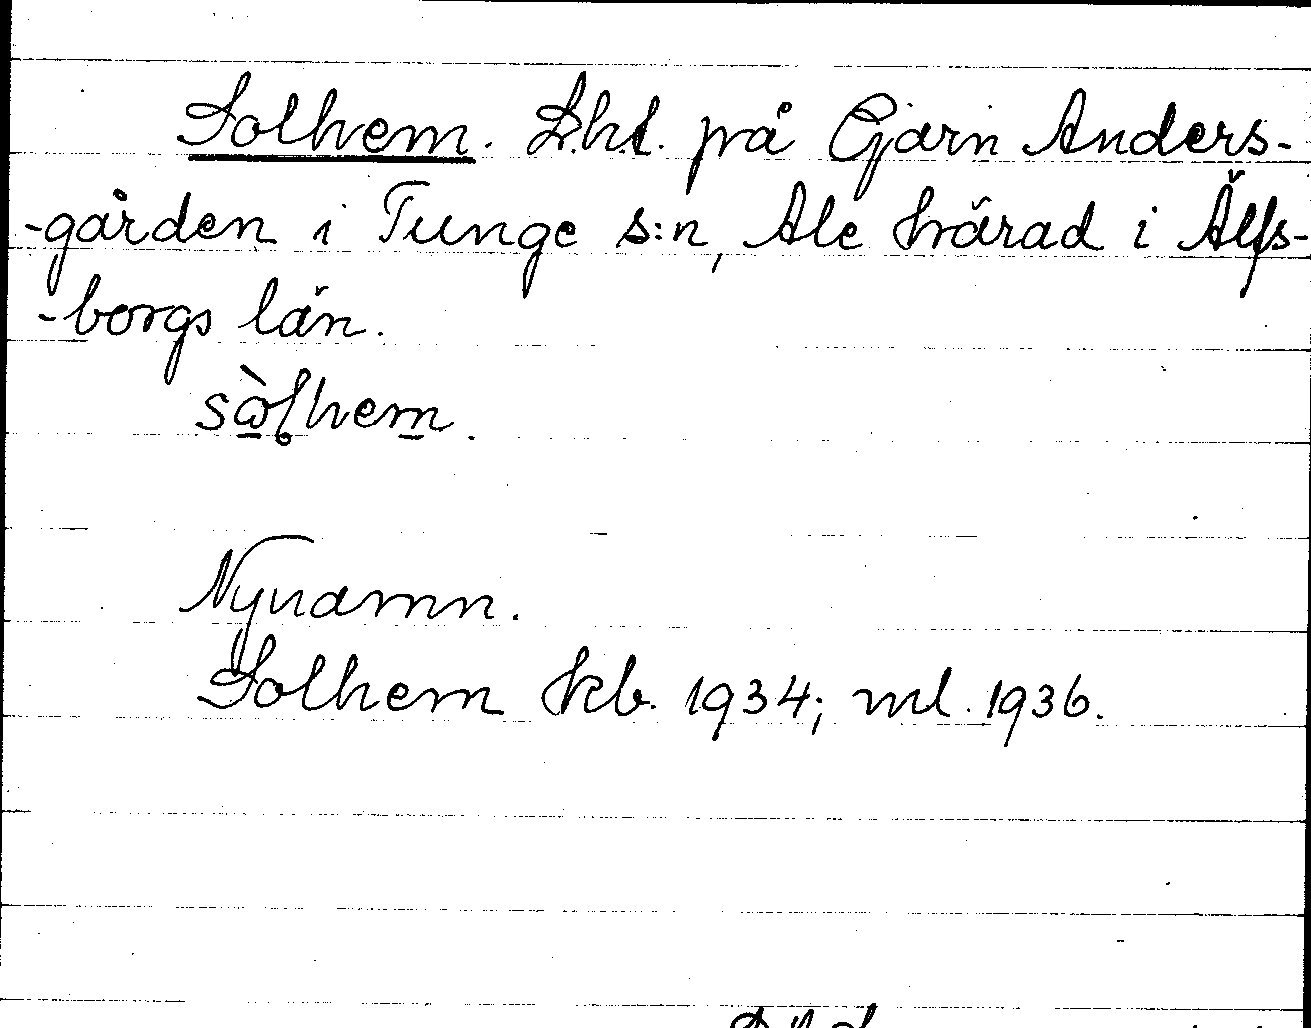 Solhem. Lht. på Gjarn Anders-
-gården i Tunge s:n, Ale härad i Älfs-
-borgs län.
sὼlhem.
Nynamn.
Solhem kb. 1934; ml. 1936.